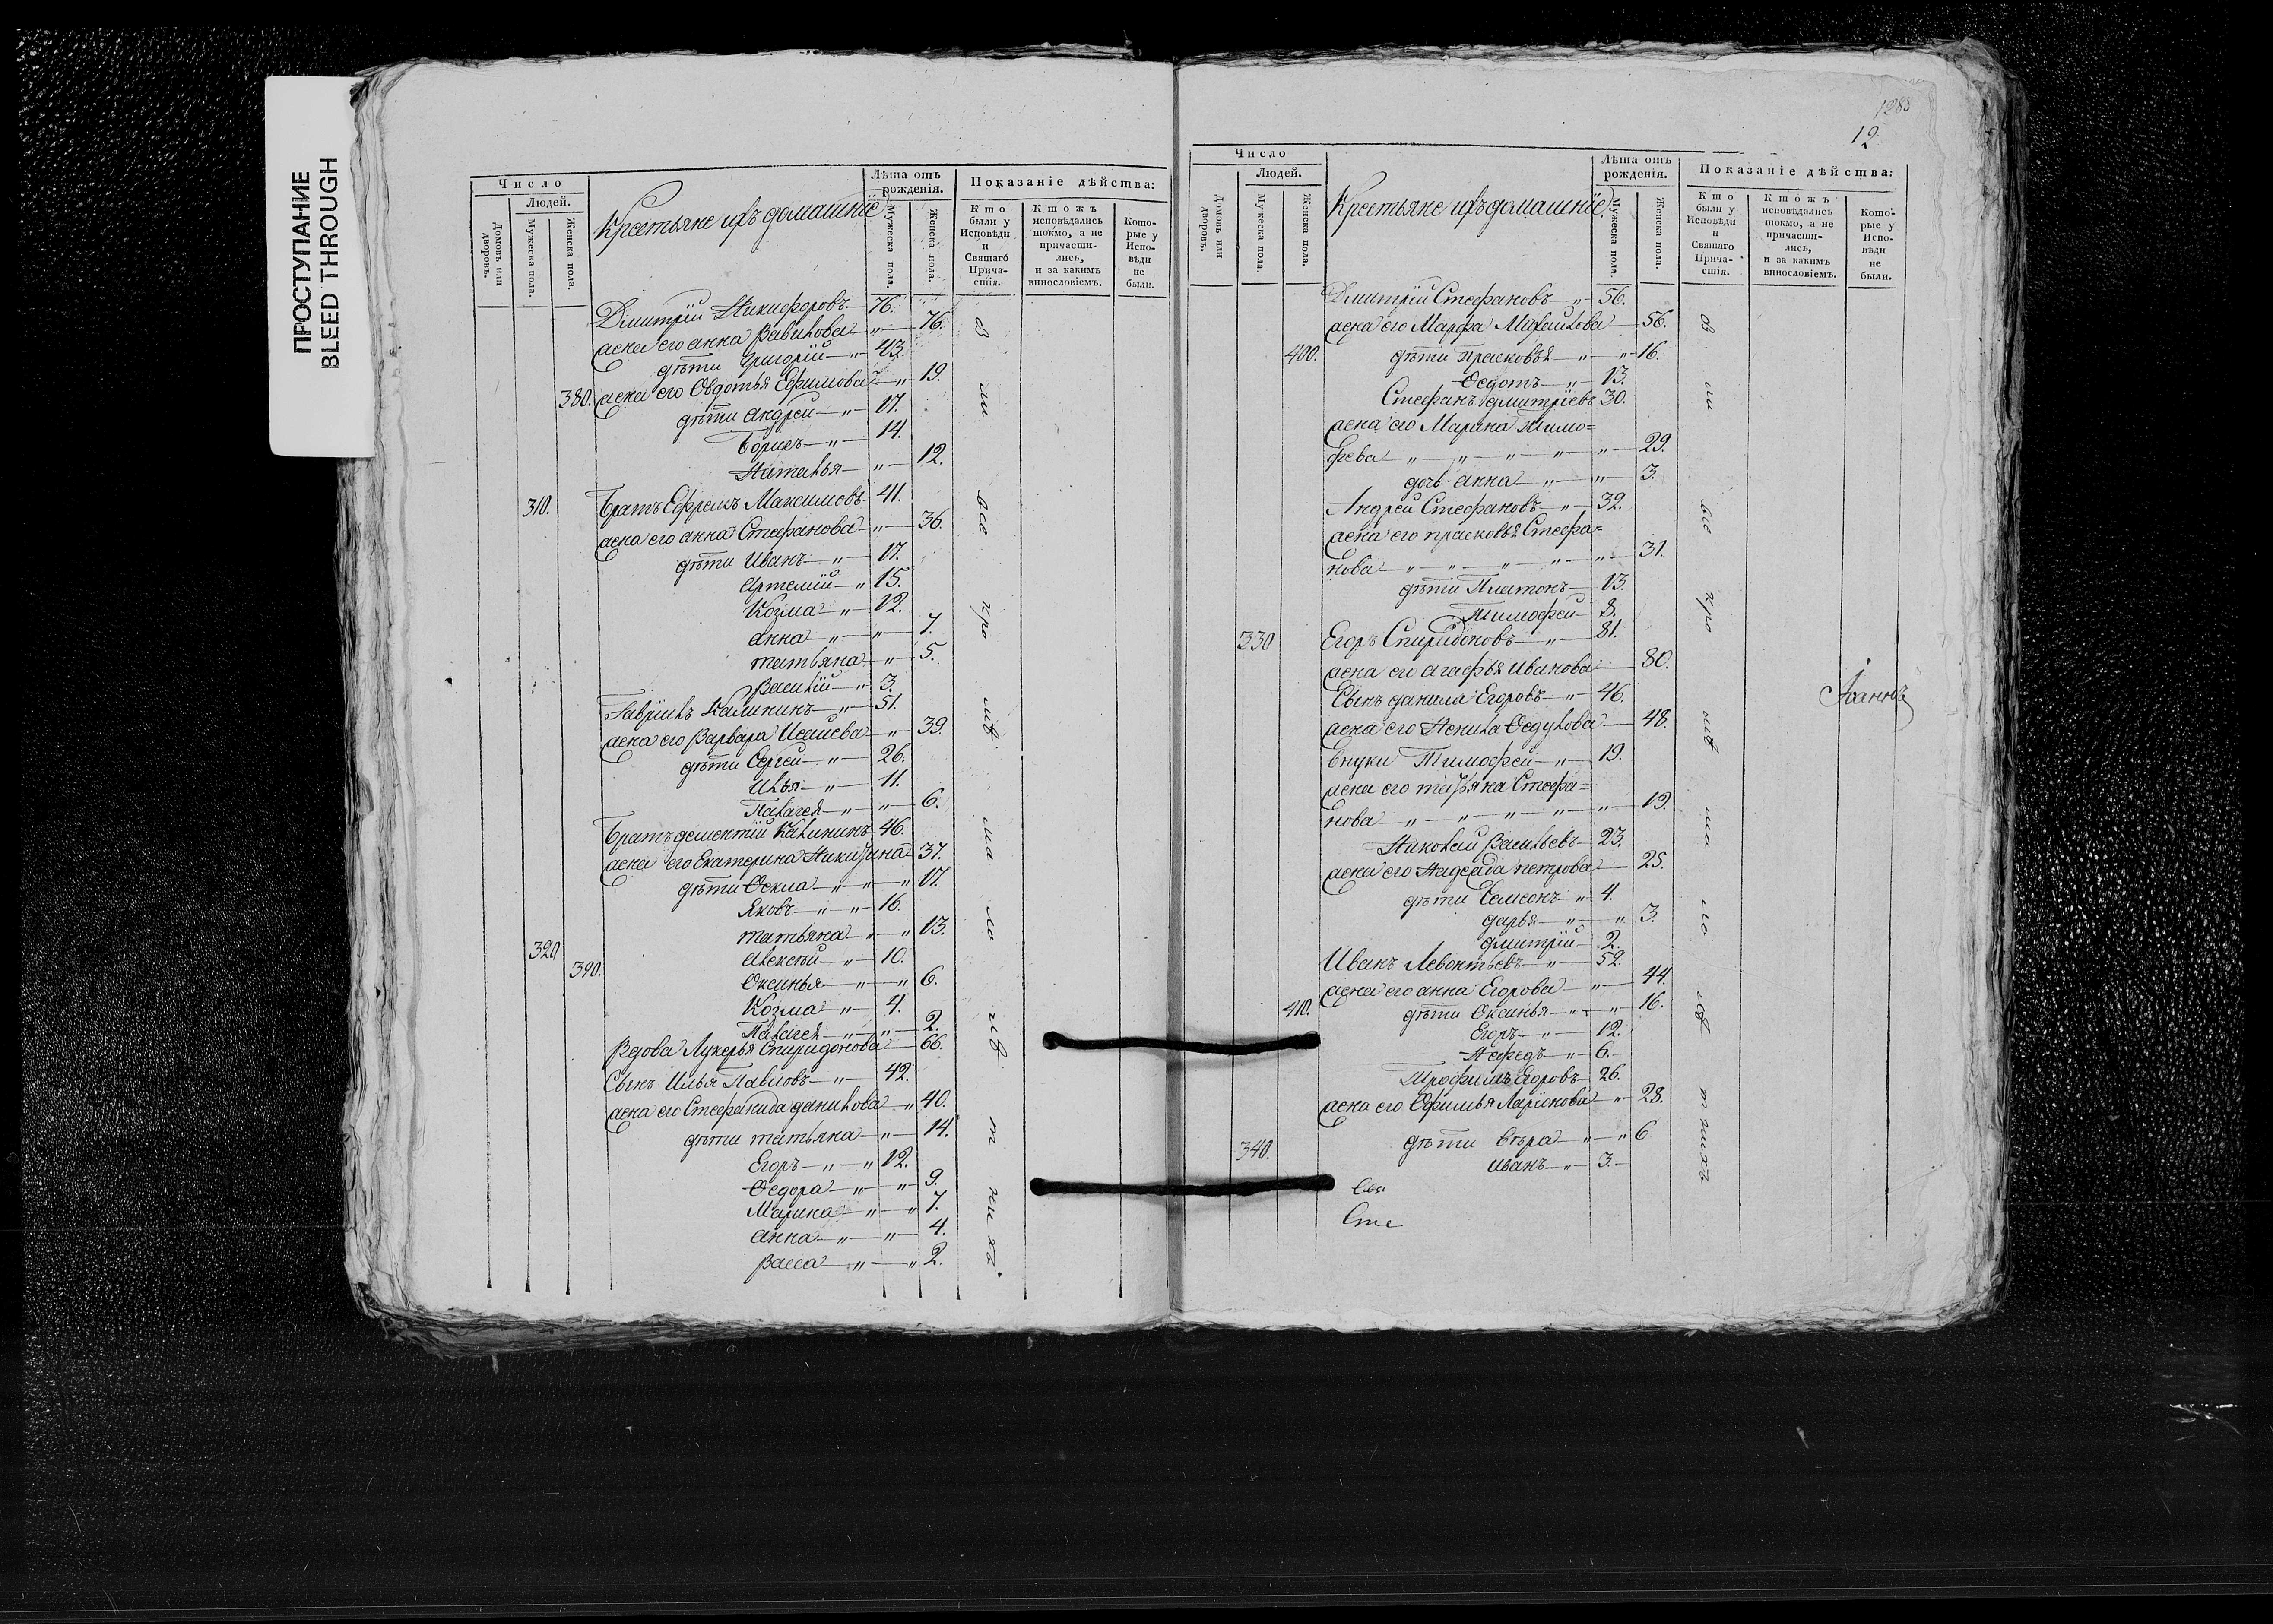 ПРОСТУПАНИЕ
BLEED THROUGH
Число
Людей.
Домовъ или дворовъ.
Мужеска пола.
Женска пола.
Крестьяне ихъ домашнїе
Лѣта отъ рожденія.
Мужеска пола.
Женска пола.
Показаніе дѣйства:
Кто были у Исповѣди и Святаго Причастія.
Ктожъ исповѣдались токмо, а не причастились, и за какимъ винословіемъ.
Которые у Исповѣди не были.
Димитрїй Никифоровъ 76.
жена его анна Вавилова 76.
дѣти Григорїй 43.
380. жена его Овдотья Ефимова 19.
дѣти андрей 17.
Борисъ 14.
Наталья 12.
310. Братъ Ефремъ Максимовъ 41.
жена его анна Стефанова 36.
дѣти Иванъ 17.
Артемїй 15.
Козма 12.
анна 7.
татьяна 5.
Василїй 3.
Гаврїилъ Калининъ 51.
жена его Варвара Исаиева 39.
дѣти Сергей 26.
Илья 11.
Палагея 6.
Братъ дементїй Калининъ 46.
жена его Екатерина Никитина 37.
дѣти Ѳекла 17.
Яковъ 16.
татьяна 13.
320 Алексѣй 10.
390. Оксинья 6.
Козма 4.
Палагея 2.
Вдова Лукерья Спиридонова 66.
Сынъ Илья Павловъ 42.
жена его Стефанида данилова 40.
дѣти татьяна 14.
Егоръ 12.
Ѳедора 9.
Марина 7.
анна 4.
Васса 2.
1283
12
Число
Людей.
Домовъ или дворовъ.
Мужеска пола.
Женска пола.
Крестьяне ихъ домашнїе
Лѣта отъ рожденія.
Мужеска пола.
Женска пола.
Показаніе дѣйства:
Кто были у Исповѣди и Святаго Причастія.
Ктожъ исповѣдались токмо, а не причастились, и за какимъ винословіемъ.
Которые у Исповѣди не были.
Дмитрїй Стефановъ 56.
жена его Марфа Михаилова 56.
400. дѣти прасковья 16.
Ѳедотъ 13.
Стефанъ дмитрїевъ 30.
жена его Марина Тимо=
фева 29.
дочь анна 3.
Андрей Стефановъ 32.
жена его прасковья Стефа=
нова 31.
дѣти Платонъ 13.
Тимофей 8.
330 Егоръ Спиридоновъ 81.
жена его агафья иванова 80.
Сынъ данила Егоровъ 46.
жена его Ѳедулова 48.
внуки Тимофей 19.
жена его татьяна Стефа=
нова 19.
Николай Васильевъ 23.
жена его Надежда петрова 25.
дѣти Самсонъ 4.
дарья 3.
дмитрїй 2.
Иванъ Левонтьевъ 52.
жена его анна Егорова 44.
410. дѣти Оксинья 16.
Егоръ 12.
Нефедъ 6.
Трофимъ Егоровъ 26.
жена его Офимья Ларїонова 28.
дѣти вѣра 6
340. иванъ 3.
Сте
Іоаннъ